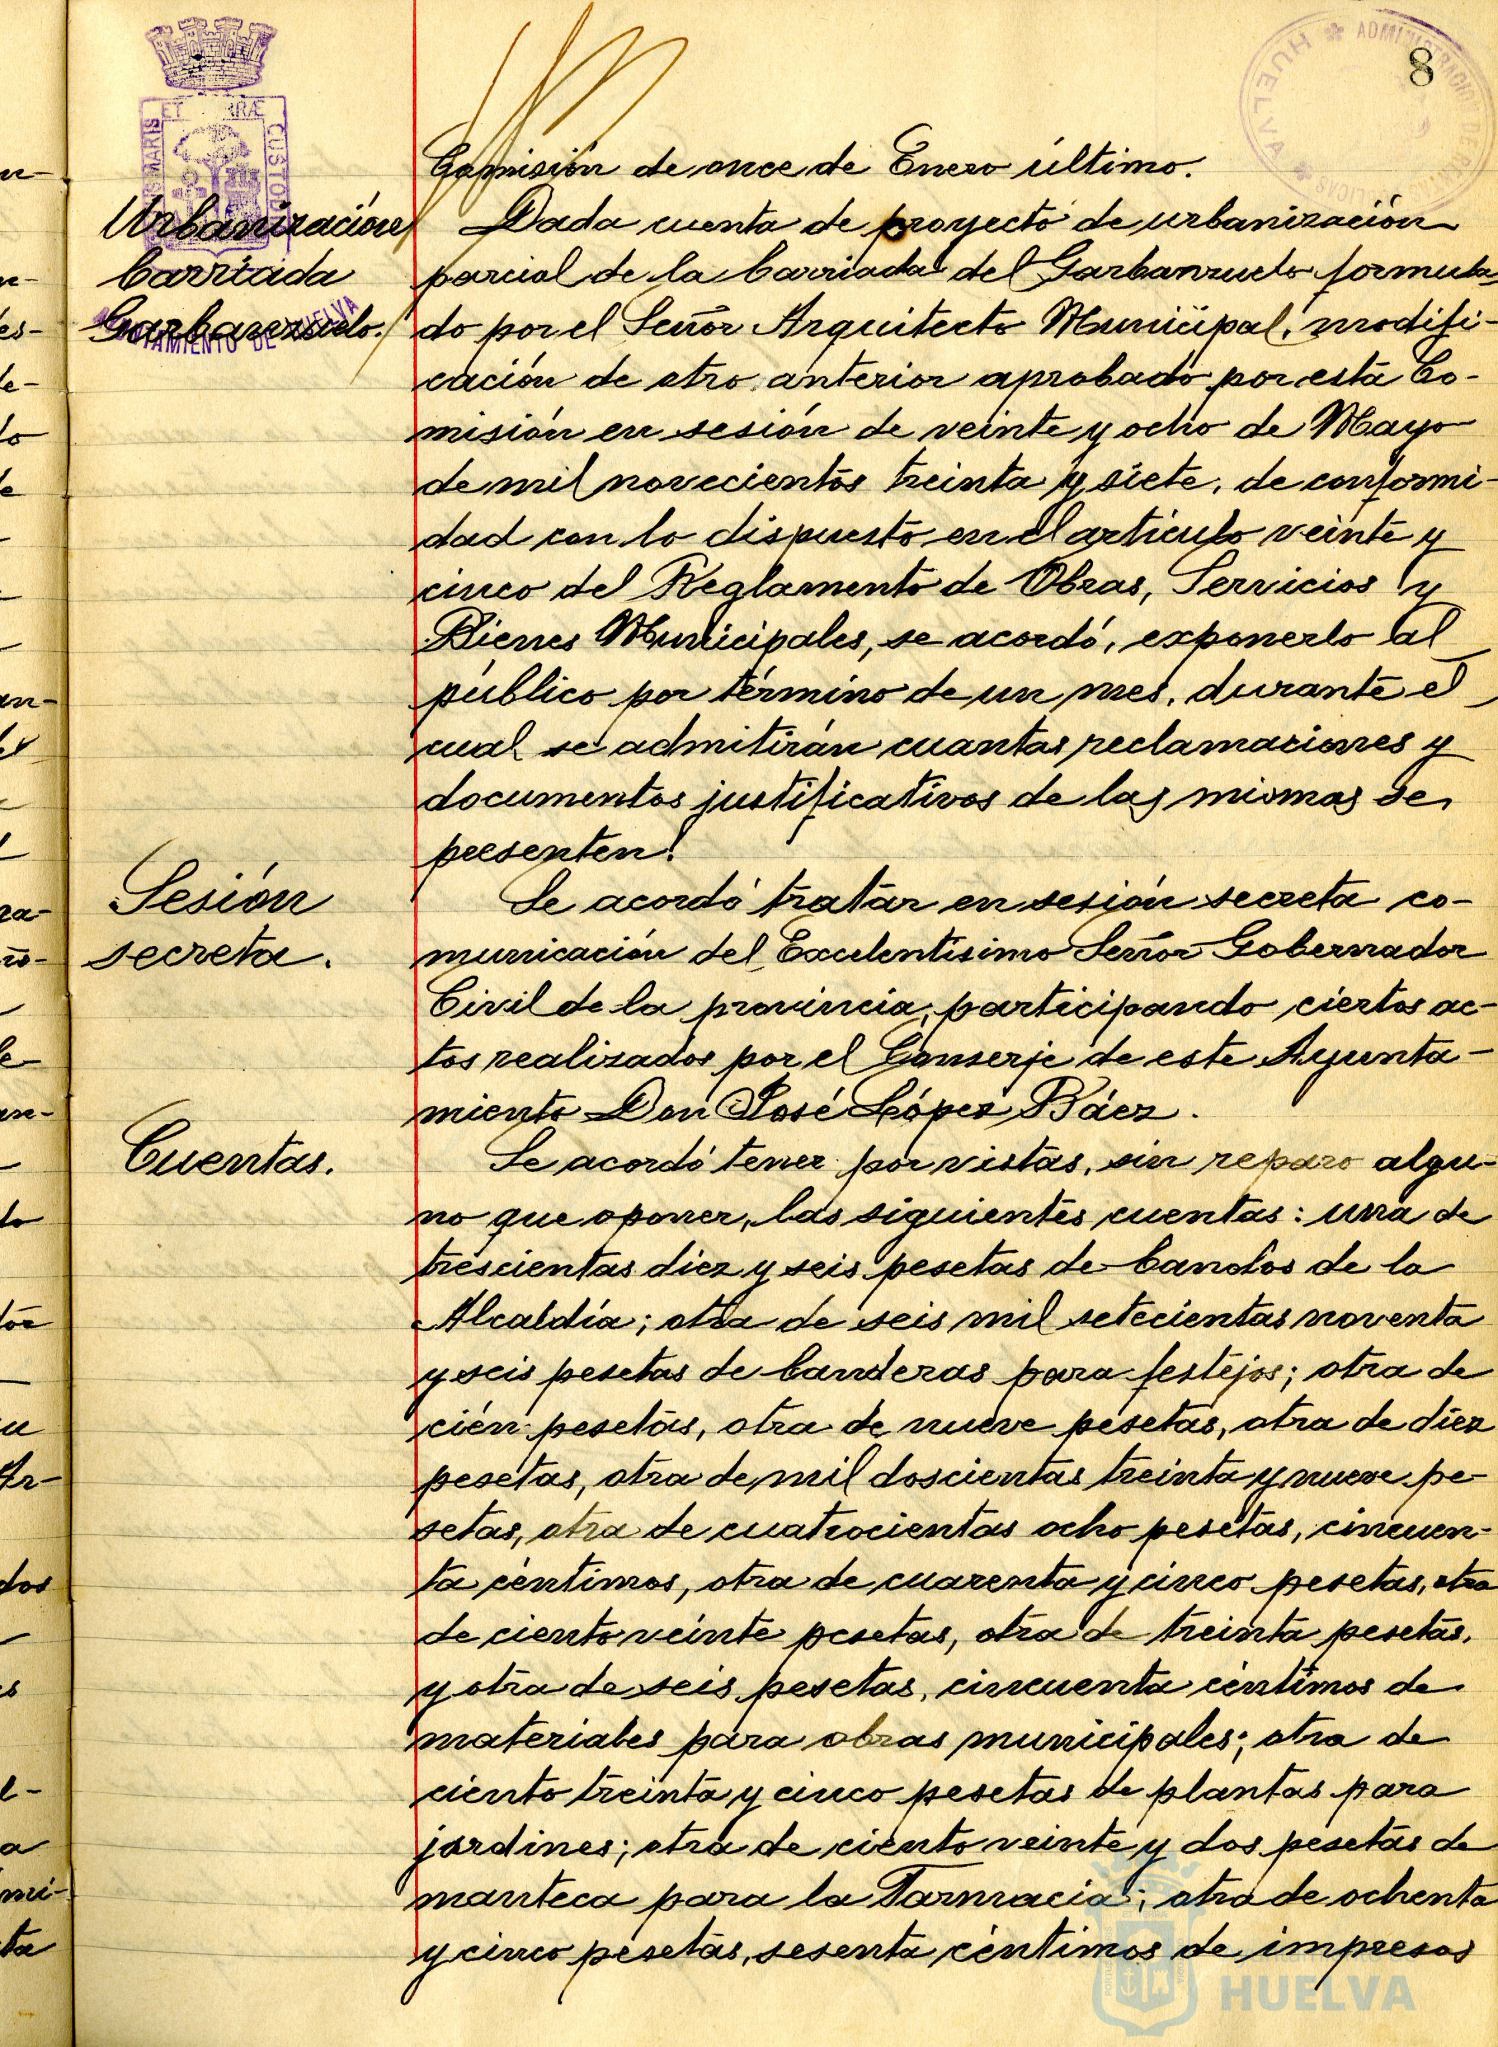 8
Comisión de once de Enero último.
Urbanización
barriada
Garbanzuelo.
Dada cuenta de proyecto de urbanización
parcial de la barriada del Garbanzuelo formula-
do por el Señor Arquitecto Municipal, modifi-
cación de otro anterior aprobado por esta Co-
misión en sesión de veinte y ocho de Mayo
de mil novecientos treinta y siete, de conformi-
dad con lo dispuesto en el artículo veinte y
cinco del Reglamento de Obras, Servicios y
Bienes Municipales, se acordó, exponerlo al
público por término de un mes, durante el
cual se admitirán cuantas reclamaciones y
documentos justificativos de las mismas se
presenten.
Sesión
secreta.
Se acordó tratar en sesión secreta co-
municación del Excelentísimo Señor Gobernador
Civil de la provincia, participando ciertos ac-
tos realizados por el Conserje de este Ayunta-
miento Don José López Báez.
Cuentas.
Se acordó tener por vistas, sin reparo algu-
no que oponer, las siguientes cuentas: una de
trescientas diez y seis pesetas de bandos de la
Alcaldía; otra de seis mil setecientas noventa
y seis pesetas de banderas para festejos; otra de
cien pesetas, otra de nueve pesetas, otra de diez
pesetas, otra de mil doscientas treinta y nueve pe-
setas, otra de cuatrocientas ocho pesetas, cincuen-
ta céntimos, otra de cuarenta y cinco pesetas, otra
de ciento veinte pesetas, otra de treinta pesetas,
y otra de seis pesetas, cincuenta céntimos de
materiales para obras municipales; otra de
ciento treinta y cinco pesetas de plantas para
jardines; otra de ciento veinte y dos pesetas de
manteca para la Farmacia; otra de ochenta
y cinco pesetas, sesenta céntimos de impresos
AYUNTAMIENTO DE HUELVA
HUELVA